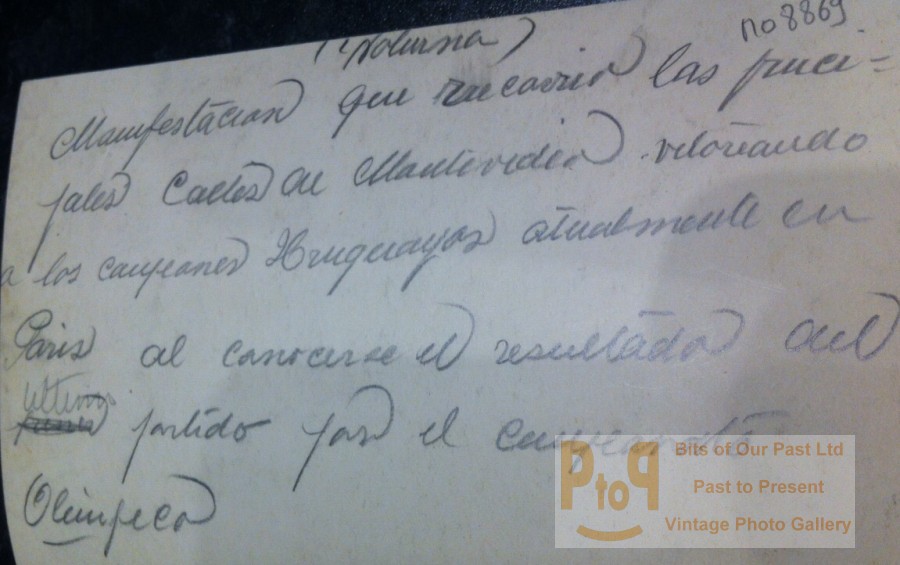 no 8869
(Noturna)
Manifestacion que recorrio las princi-
pales Calles de Montevideo vitoreando
a los campeones Uruguayos atualmente en
Paris al conocerse el resultado del
ultimo
partido por el campeonato
Olimpico
PtoP
Bits of Our Past Ltd
Past to Present
Vintage Photo Gallery